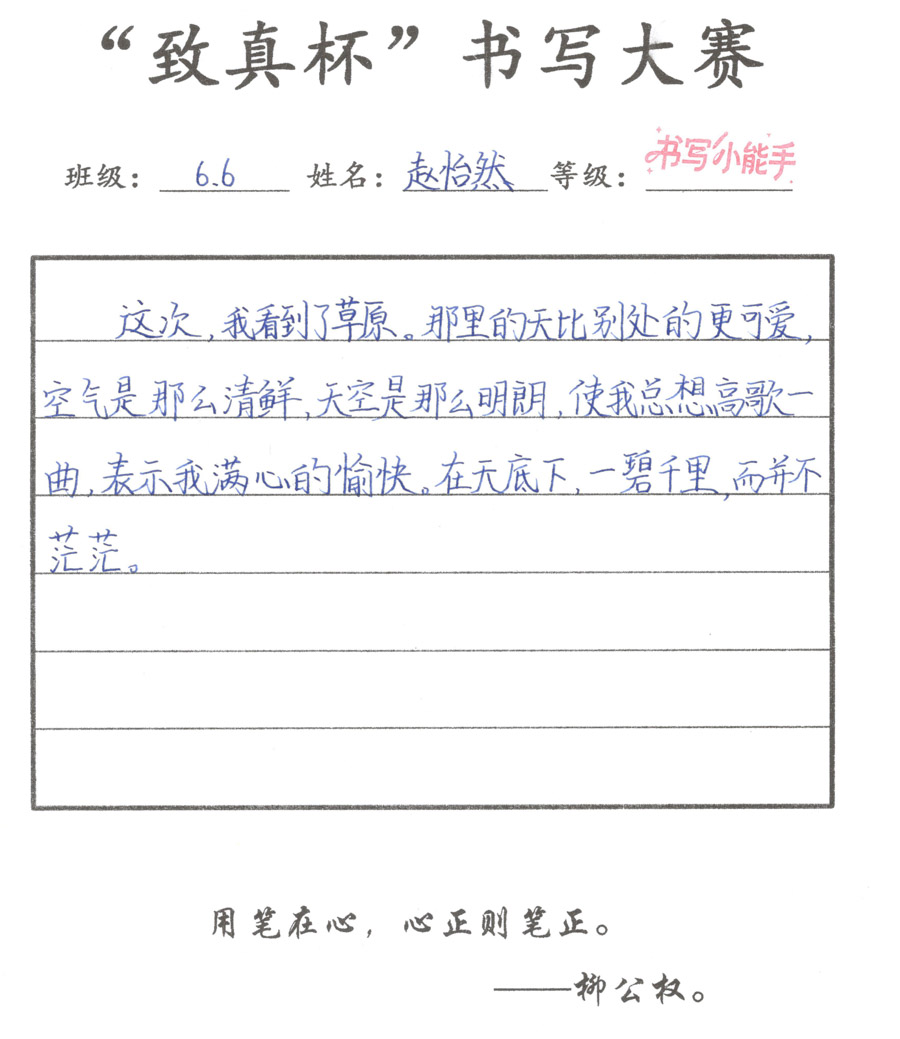 “致真杯”书写大赛
班级：6.6 姓名：赵怡然 等级：书写小能手
这次,我看到了草原。那里的天比别处的更可爱,
空气是那么清鲜,天空是那么明朗,使我总想高歌一
曲,表示我满心的愉快。在天底下,一碧千里,而并不
茫茫。
用笔在心，心正则笔正。
——柳公权。